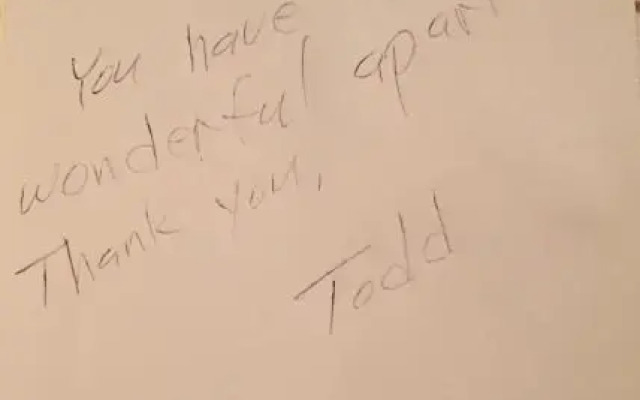 You have
wonderful apar
Thank you,
Todd